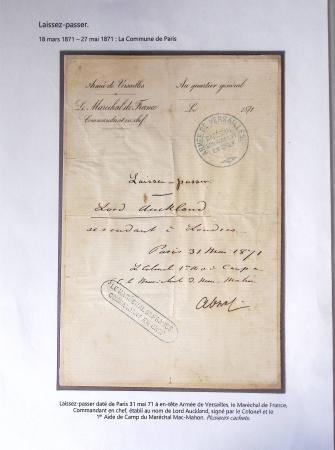 Laissez-passer.
18 mars 1871 – 27 mai 1871 : La Commune de Paris
Armée de Versailles
Au quartier général
Le Maréchal de France
Commandant en chef
Le 1871
ARMÉE DE VERSAILLES
MARÉCHAL
COMMANDANT
EN CHEF
Laissez-passer
Lord Auckland
se rendant à Londres
Paris 31 Mai 1871
Le Colonel 1er Aide de Camp
du Maréchal de Mac Mahon
LE MARÉCHAL DE FRANCE
COMMANDANT EN CHEF
Laissez-passer daté de Paris 31 mai 71 à en-tête Armée de Versailles, le Maréchal de France,
Commandant en chef, établi au nom de Lord Auckland, signé par le Colonel et le
1er Aide de Camp du Maréchal Mac-Mahon. Plusieurs cachets.